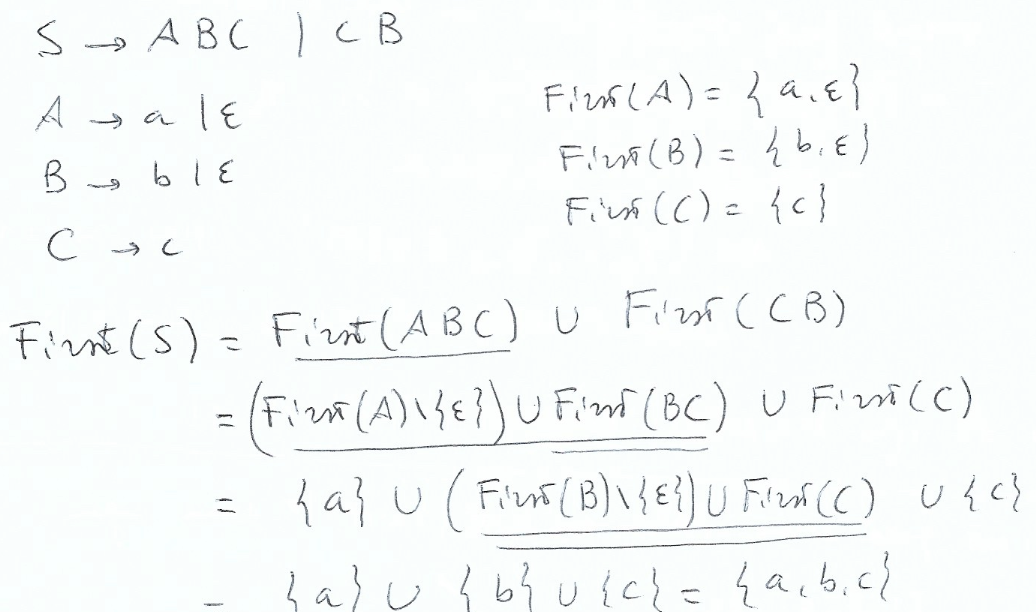 S → ABC | CB
A → a | ε
B → b | ε
C → c
First(A) = {a, ε}
First(B) = {b, ε}
First(C) = {c}
First(S) = First(ABC) ∪ First(CB)
= (First(A)\{ε}) ∪ First(BC) ∪ First(C)
= {a} ∪ (First(B)\{ε}) ∪ First(C) ∪ {c}
= {a} ∪ {b} ∪ {c} = {a, b, c}